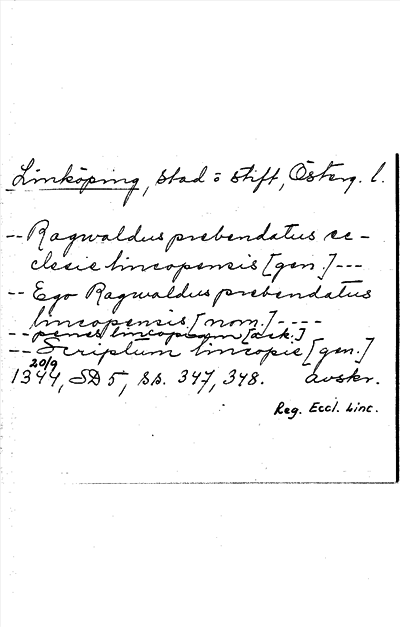 Linköping, stad o stift, Österg. l.
-- Ragwaldus prebendatus ec-
clesie lincopensis [gen.] ---
-- Ego Ragwaldus prebendatus
lincopensis [nom.] ----
-- penes lincopiam [ack.]
-- Scriptum lincopie [gen.]
20/9
1344, SD 5, ss. 347, 348. avskr.
Reg. Eccl. Linc.